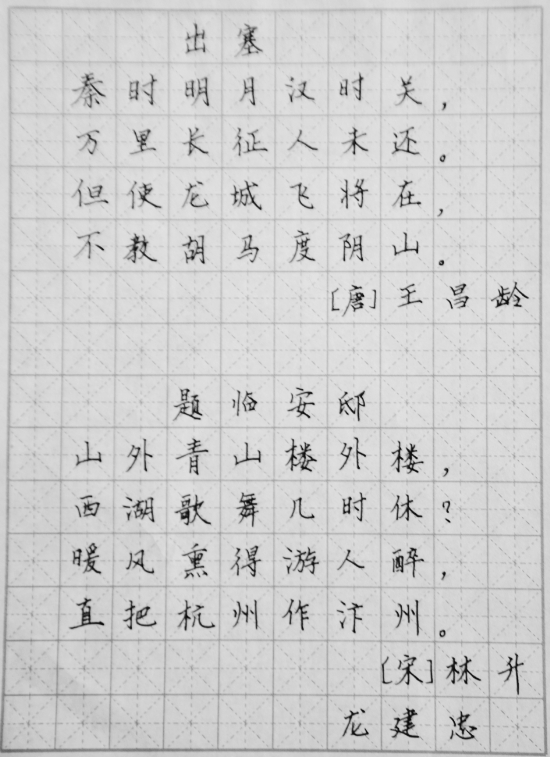 出塞
秦时明月汉时关，
万里长征人未还。
但使龙城飞将在，
不教胡马度阴山。
[唐]王昌龄
题临安邸
山外青山楼外楼，
西湖歌舞几时休？
暖风熏得游人醉，
直把杭州作汴州。
[宋]林升
龙建忠